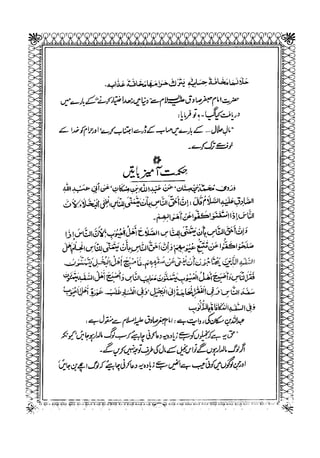 حَلَالَهَا مَخَافَةَ حِسَابِهِ وَيَتْرُكُ حَرَامَهَا مَخَافَةَ عَذَابِهِ.
حضرت امام جعفر صادق علیہ السلام سے دنیا میں زہد اختیار کرنے کے بارے میں
دریافت کیا گیا۔ تو فرمایا:
مال حلال کے بارے میں حساب کے ڈر سے اجتناب کرے اور حرام کو خدا کے
خوف سے ترک کرے۔
حکمت آمیز باتیں
وَرَوَى مُحَمَّدُ بْنُ سِنَانٍ عَنْ عَبْدِ اللَّهِ بْنِ مُسْكَانَ عَنْ أَبِي عَبْدِ اللَّهِ
الصَّادِقِ عَلَيْهِ السَّلَامُ قَالَ إِنَّ أَحَقَّ النَّاسِ بِأَنْ يَتَمَنَّى لِلنَّاسِ الْغِنَى الْبُخَلَاءُ لِأَنَّ
النَّاسَ إِذَا اسْتَغْنَوْا كَفُّوا عَنْ أَمْوَالِهِمْ
وَإِنَّ أَحَقَّ النَّاسِ بِأَنْ يَتَمَنَّى لِلنَّاسِ الصَّلَاحَ أَهْلُ الْعُيُوبِ لِأَنَّ النَّاسَ إِذَا
صَلَحُوا كَفُّوا عَنْ تَتَبُّعِ عُيُوبِهِمْ وَإِنَّ أَحَقَّ النَّاسِ بِأَنْ يَتَمَنَّى لِلنَّاسِ الْحِلْمَ أَهْلُ
السَّفَهِ الَّذِينَ يَحْتَاجُونَ أَنْ يُعْفَى عَنْ سَفَهِهِمْ فَأَصْبَحَ أَهْلُ الْبُخْلِ يَتَمَنَّوْنَ
فَقْرَ النَّاسِ وَأَصْبَحَ أَهْلُ الْعُيُوبِ يَتَمَنَّوْنَ مَعَايِبَ النَّاسِ وَأَصْبَحَ أَهْلُ السَّفَهِ يَتَمَنَّوْنَ
سَفَهَ النَّاسِ وَفِي الْفَقْرِ الْحَاجَةُ إِلَى الْبَخِيلِ وَفِي الْفَسَادِ طَلَبُ عَوْرَةِ أَهْلِ الْعُيُوبِ
وَفِي السَّفَهِ الْمُكَافَاةُ بِالذُّنُوبِ
عبداللہ بن مسکان کی روایت ہے، امام جعفر صادق علیہ السلام سے منقول ہے:
حق یہ ہے کہ بخیلوں کو سب سے زیادہ یہ دعا کرنی چاہیے کہ سب لوگ مالدار ہو جائیں کیونکہ
اگر لوگ مالدار ہوں گے تو اس بخیل کے مال کی طرف توجہ نہیں کریں گے۔
اور جن لوگوں میں کوئی عیب ہے انھیں سب سے زیادہ یہ دعا کرنی چاہیے کہ لوگ اچھے بن جائیں